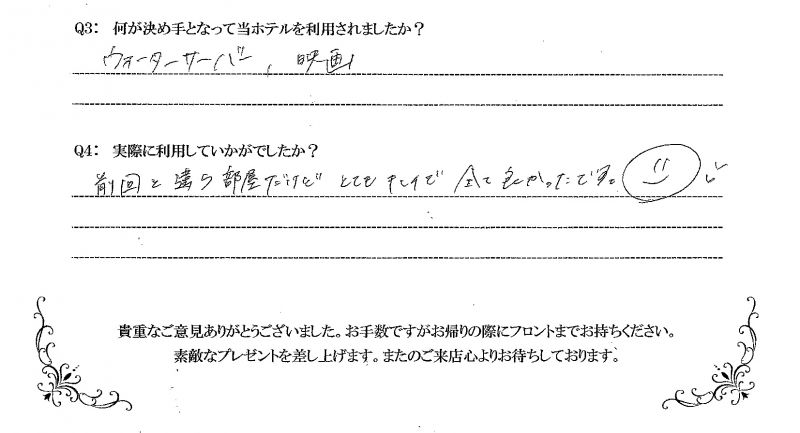 Q3: 何が決め手となって当ホテルを利用されましたか?
ウォーターサーバー, 映画
Q4: 実際に利用していかがでしたか?
前回と違う部屋だけど とてもキレイで 全て良かったです。
貴重なご意見ありがとうございました。お手数ですがお帰りの際にフロントまでお持ちください。
素敵なプレゼントを差し上げます。またのご来店心よりお待ちしております。